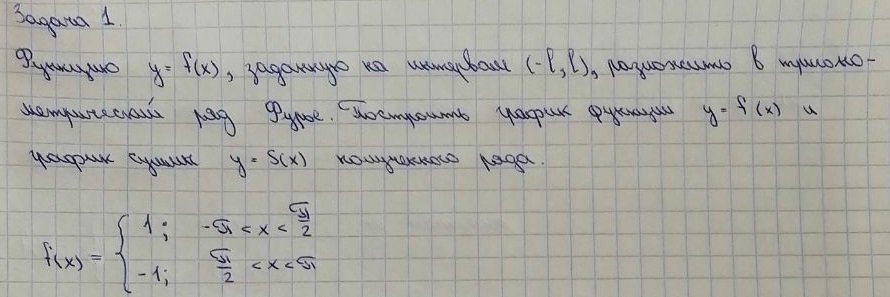 Задача 1.
Функцию y = f(x), заданную на интервале (-l, l), разложить в тригоно-
метрический ряд Фурье. Построить график функции y = f(x) и
график суммы y = S(x) полученного ряда.
f(x) = { 1; -π < x < π/2
-1; π/2 < x < π